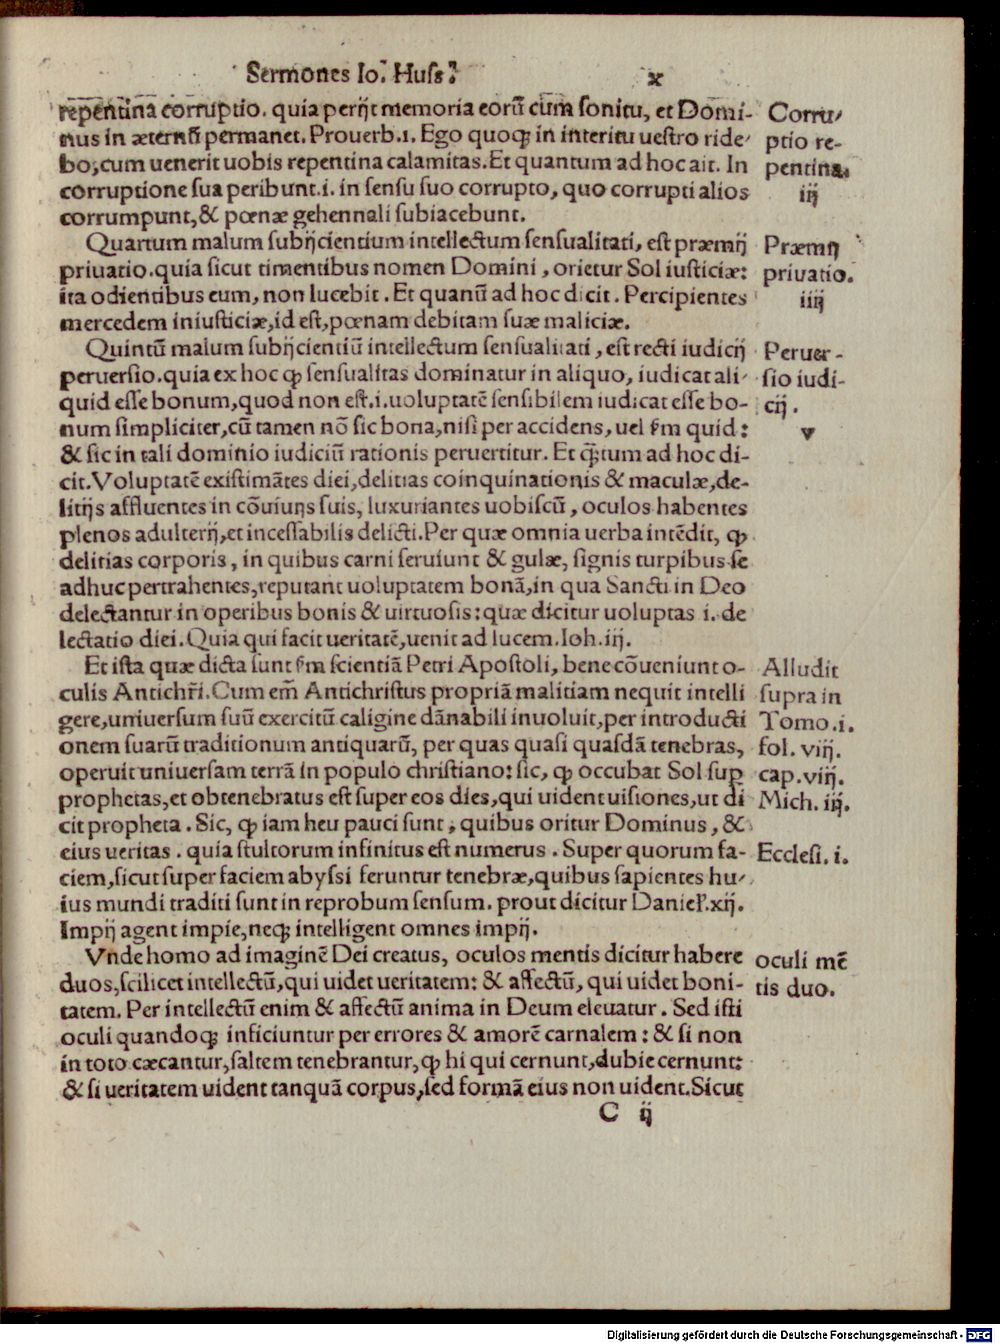 Sermones Io. Huss. x
repentina corruptio. quia perijt memoria eorũ cum sonitu, et Domi-
nus in æternũ permanet. Prouerb.1. Ego quoq; in interitu uestro ride-
bo, cum uenerit uobis repentina calamitas. Et quantum ad hoc ait. In
corruptione sua peribunt.i. in sensu suo corrupto, quo corrupti alios
corrumpunt, & pœnæ gehennali subiacebunt.
Corru-
ptio re-
pentina.
iij
Quartum malum subijcientium intellectum sensualitati, est præmij
priuatio. quia sicut timentibus nomen Domini, orietur Sol iusticiæ:
ita odientibus eum, non lucebit. Et quanũ ad hoc dicit. Percipientes
mercedem iniusticiæ, id est, pœnam debitam suæ maliciæ.
Præmij
priuatio.
iiij
Quintũ malum subijcientiũ intellectum sensualitati, est recti iudicij
peruersio. quia ex hoc ꝙ sensualitas dominatur in aliquo, iudicat ali-
quid esse bonum, quod non est.i. uoluptatẽ sensibilem iudicat esse bo-
num simpliciter, cũ tamen nõ sic bona, nisi per accidens, uel sm̃ quid:
& sic in tali dominio iudiciũ rationis peruertitur. Et q̃tum ad hoc di-
cit. Voluptatẽ existimãtes diei, delitias coinquinationis & maculæ, de-
litijs affluentes in cõuiuijs suis, luxuriantes uobiscũ, oculos habentes
plenos adulterij, et incessabilis delicti. Per quæ omnia uerba intẽdit, ꝙ
delitias corporis, in quibus carni seruiunt & gulæ, signis turpibus se
adhuc pertrahentes, reputant uoluptatem bonã, in qua Sancti in Deo
delectantur in operibus bonis & uirtuosis: quæ dicitur uoluptas i. de
lectatio diei. Quia qui facit ueritatẽ, uenit ad lucem. Ioh. iij.
Peruer-
sio iudi-
cij.
v
Et ista quæ dicta sunt sm̃ scientiã Petri Apostoli, bene cõueniunt o-
culis Antichr̃i. Cum em̃ Antichristus propriã malitiam nequit intelli
gere, uniuersum suũ exercitũ caligine dãnabili inuoluit, per introducti
onem suarũ traditionum antiquarũ, per quas quasi quasdã tenebras,
operuit uniuersam terrã in populo christiano: sic, ꝙ occubat Sol sup
prophetas, et obtenebratus est super eos dies, qui uident uisiones, ut di
cit propheta. Sic, ꝙ iam heu pauci sunt, quibus oritur Dominus, &
eius ueritas. quia stultorum infinitus est numerus. Super quorum fa-
ciem, sicut super faciem abyssi feruntur tenebræ, quibus sapientes hu-
ius mundi traditi sunt in reprobum sensum. prout dicitur Daniel. xij.
Impij agent impie, neq; intelligent omnes impij.
Alludit
supra in
Tomo.i.
fol. viij.
cap. viij.
Mich. iij.
Ecclesi. i.
Vnde homo ad imaginẽ Dei creatus, oculos mentis dicitur habere
duos, scilicet intellectũ, qui uidet ueritatem: & affectũ, qui uidet boni-
tatem. Per intellectũ enim & affectũ anima in Deum eleuatur. Sed isti
oculi quandoq; inficiuntur per errores & amorẽ carnalem: & si non
in toto cæcantur, saltem tenebrantur, ꝙ hi qui cernunt, dubie cernunt:
& si ueritatem uident tanquã corpus, sed formã eius non uident. Sicut
oculi mẽ
tis duo.
C ij
Digitalisierung gefördert durch die Deutsche Forschungsgemeinschaft - DFG